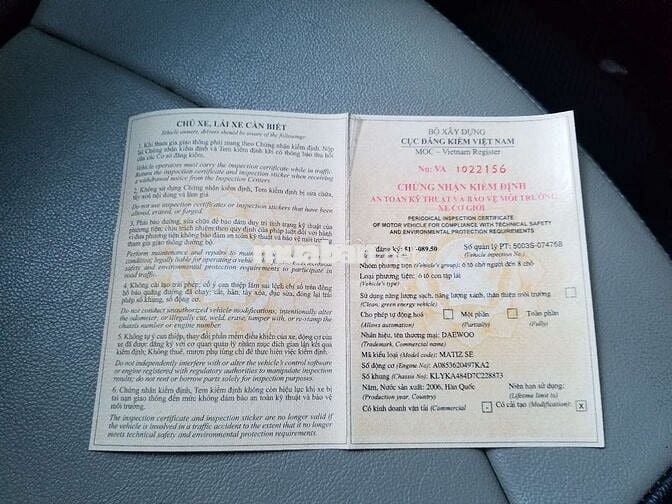 CHỦ XE, LÁI XE CẦN BIẾT
Vehicle owners, drivers should be aware of the followings:
1. Khi tham gia giao thông phải mang theo Chứng nhận kiểm định. Nộp
lại Chứng nhận kiểm định và Tem kiểm định khi có thông báo thu hồi
của các Cơ sở đăng kiểm.
Vehicle operators must carry the inspection certificate while in traffic.
Return the inspection certificate and inspection sticker when receiving
a withdrawal notice from the Inspection Centers.
2. Không sử dụng Chứng nhận kiểm định, Tem kiểm định bị sửa chữa,
tẩy xoá nội dung và làm giả.
Do not use inspection certificates or inspection stickers that have been
altered, erased, or forged.
3. Phải bảo dưỡng, sửa chữa để bảo đảm duy trì tình trạng kỹ thuật của
phương tiện; chịu trách nhiệm theo quy định của pháp luật đối với hành
vi đưa phương tiện không bảo đảm an toàn kỹ thuật và bảo vệ môi trường
tham gia giao thông đường bộ.
Perform maintenance and repairs to
condition; legally liable for operating a vehicle
safety and environmental protection requirements to participate in
road traffic.
4. Không cải tạo trái phép; cố ý can thiệp làm sai lệch chỉ số trên đồng
hồ báo quãng đường đã chạy; cắt, hàn, tẩy xóa, đục sửa, đóng lại trái
phép số khung, số động cơ.
Do not conduct unauthorized vehicle modifications; intentionally alter
the odometer, or illegally cut, weld, erase, tamper with, or re-stamp the
chassis number or engine number.
5. Không tự ý can thiệp, thay đổi phần mềm điều khiển của xe, động cơ của
xe đã được đăng ký với cơ quan quản lý nhằm mục đích gian lận kết quả
kiểm định; Không thuê, mượn phụ tùng chỉ để thực hiện việc kiểm định.
Do not independently interfere with or alter the vehicle's control software
or engine registered with regulatory authorities to manipulate inspection
results; do not rent or borrow parts solely for inspection purposes.
6. Chứng nhận kiểm định, Tem kiểm định không còn hiệu lực khi xe bị
tai nạn giao thông đến mức không đảm bảo an toàn kỹ thuật và bảo vệ
môi trường.
The inspection certificate and inspection sticker are no longer valid if
the vehicle is involved in a traffic accident to the extent that it no longer
meets technical safety and environmental protection requirements.
BỘ XÂY DỰNG
CỤC ĐĂNG KIỂM VIỆT NAM
MOC – Vietnam Register
No: VA 1022156
CHỨNG NHẬN KIỂM ĐỊNH
AN TOÀN KỸ THUẬT VÀ BẢO VỆ MÔI TRƯỜNG
XE CƠ GIỚI
PERIODICAL INSPECTION CERTIFICATE
OF MOTOR VEHICLE FOR COMPLIANCE WITH TECHNICAL SAFETY
AND ENVIRONMENTAL PROTECTION REQUIREMENTS
đăng ký: -089.50 Số quản lý PT: 5003S-074758
(Vehicle inspection No.)
Nhóm phương tiện (Vehicle's group): ô tô chở người đến 8 chỗ
Loại phương tiện: ô tô con tập lái
(Vehicle's type)
Sử dụng năng lượng sạch, năng lượng xanh, thân thiện môi trường
(Clean, green energy vehicle)
Cho phép tự động hoá Một phần Toàn phần
(Allows automation) (Partially) (Fully)
Nhãn hiệu, tên thương mại: DAEWOO
(Trademark, Commercial name)
Mã kiểu loại (Model code): MATIZ SE
Số động cơ (Engine No): A0853620497KA2
Số khung (Chassis No): KLYKA484D7C228873
Năm, Nước sản xuất: 2006, Hàn Quốc Niên hạn sử dụng:
(Production year, Country) (Lifetime limit to)
Có kinh doanh vận tải (Commercial - Có cải tạo (Modification): X